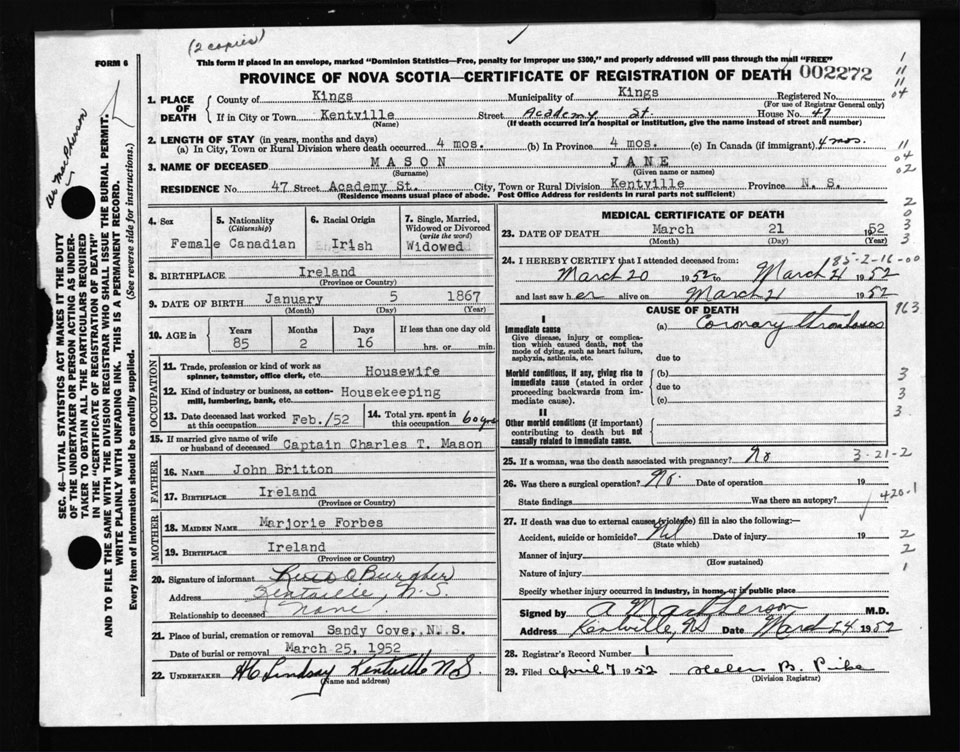 (2 copies)
FORM 6
This form if placed in an envelope, marked "Dominion Statistics—Free, penalty for improper use $300," and properly addressed will pass through the mail "FREE"
PROVINCE OF NOVA SCOTIA—CERTIFICATE OF REGISTRATION OF DEATH 002272
1. PLACE OF DEATH County of Kings Municipality of Kings Registered No.
(For use of Registrar General only)
If in City or Town Kentville Street Academy St House No. 47
(Name) (If death occurred in a hospital or institution, give the name instead of street and number)
2. LENGTH OF STAY (in years, months and days)
(a) In City, Town or Rural Division where death occurred 4 mos. (b) In Province 4 mos. (c) In Canada (if immigrant) 4 mos.
3. NAME OF DECEASED MASON JANE
(Surname) (Given name or names)
RESIDENCE No 47 Street Academy St. City, Town or Rural Division Kentville Province N. S.
(Residence means usual place of abode. Post Office Address for residents in rural parts not sufficient)
4. Sex 5. Nationality (Citizenship) 6. Racial Origin 7. Single, Married, Widowed or Divorced (write the word)
Female Canadian Irish Widowed
8. BIRTHPLACE Ireland
(Province or Country)
9. DATE OF BIRTH January 5 1867
(Month) (Day) (Year)
10. AGE in Years Months Days If less than one day old
85 2 16 hrs. or min.
OCCUPATION
11. Trade, profession or kind of work as spinner, teamster, office clerk, etc. Housewife
12. Kind of industry or business, as cotton-mill, lumbering, bank, etc. Housekeeping
13. Date deceased last worked at this occupation Feb./52 14. Total yrs. spent in this occupation 60 yrs
15. If married give name of wife or husband of deceased Captain Charles T. Mason
FATHER
16. NAME John Britton
17. BIRTHPLACE Ireland
(Province or Country)
MOTHER
18. MAIDEN NAME Marjorie Forbes
19. BIRTHPLACE Ireland
(Province or Country)
20. Signature of informant Burgher
Address Kentville, N.S.
Relationship to deceased None
21. Place of burial, cremation or removal Sandy Cove, N. S.
Date of burial or removal March 25, 1952
22. UNDERTAKER HC Lindsay Kentville NS
(Name and address)
MEDICAL CERTIFICATE OF DEATH
23. DATE OF DEATH March 21 1952
(Month) (Day) (Year)
85-2-16-00
24. I HEREBY CERTIFY that I attended deceased from:
March 20 1952 to March 21 1952
and last saw her alive on March 21 1952
CAUSE OF DEATH
I
Immediate cause (a) Coronary thrombosis
Give disease, injury or complication which caused death, not the mode of dying, such as heart failure, asphyxia, asthenia, etc.
due to
Morbid conditions, if any, giving rise to immediate cause (stated in order proceeding backwards from immediate cause).
(b)
due to
(c)
II
Other morbid conditions (if important) contributing to death but not causally related to immediate cause.
25. If a woman, was the death associated with pregnancy? No 3-21-2
26. Was there a surgical operation? No. Date of operation 19
State findings Was there an autopsy? 420-1
27. If death was due to external causes (violence) fill in also the following:—
Accident, suicide or homicide? Nil Date of injury 19
(State which)
Manner of injury
(How sustained)
Nature of injury
Specify whether injury occurred in industry, in home, or in public place
Signed by A MacPherson M.D.
Address Kentville, NS Date March 24 1952
28. Registrar's Record Number 1
29. Filed April 7 1952 Helen B. Pike
(Division Registrar)
SEC. 46—VITAL STATISTICS ACT MAKES IT THE DUTY
OF THE UNDERTAKER OR PERSON ACTING AS UNDER-
TAKER TO OBTAIN ALL THE PARTICULARS REQUIRED
IN THE "CERTIFICATE OF REGISTRATION OF DEATH"
AND TO FILE THE SAME WITH THE DIVISION REGISTRAR WHO SHALL ISSUE THE BURIAL PERMIT.
WRITE PLAINLY WITH UNFADING INK. THIS IS A PERMANENT RECORD.
Every item of Information should be carefully supplied. (See reverse side for instructions.)
MacPherson
1
11
11
04
11
04
02
2
0
3
3
963
3
3
3
2
2
1